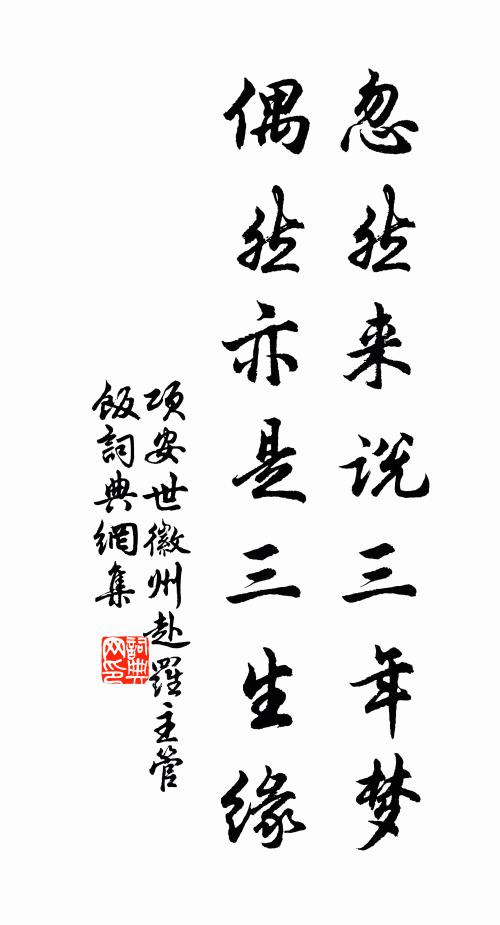 忽然来说三年梦
偶然亦是三生缘
项安世徽州赴羅主管
飯詞典網集
詞典
网印